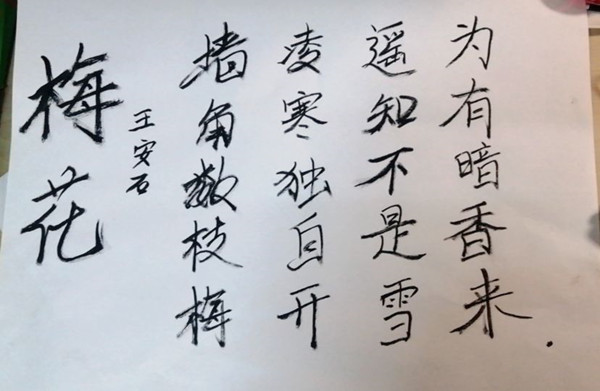 梅花
王安石
墙角数枝梅
凌寒独自开
遥知不是雪
为有暗香来.